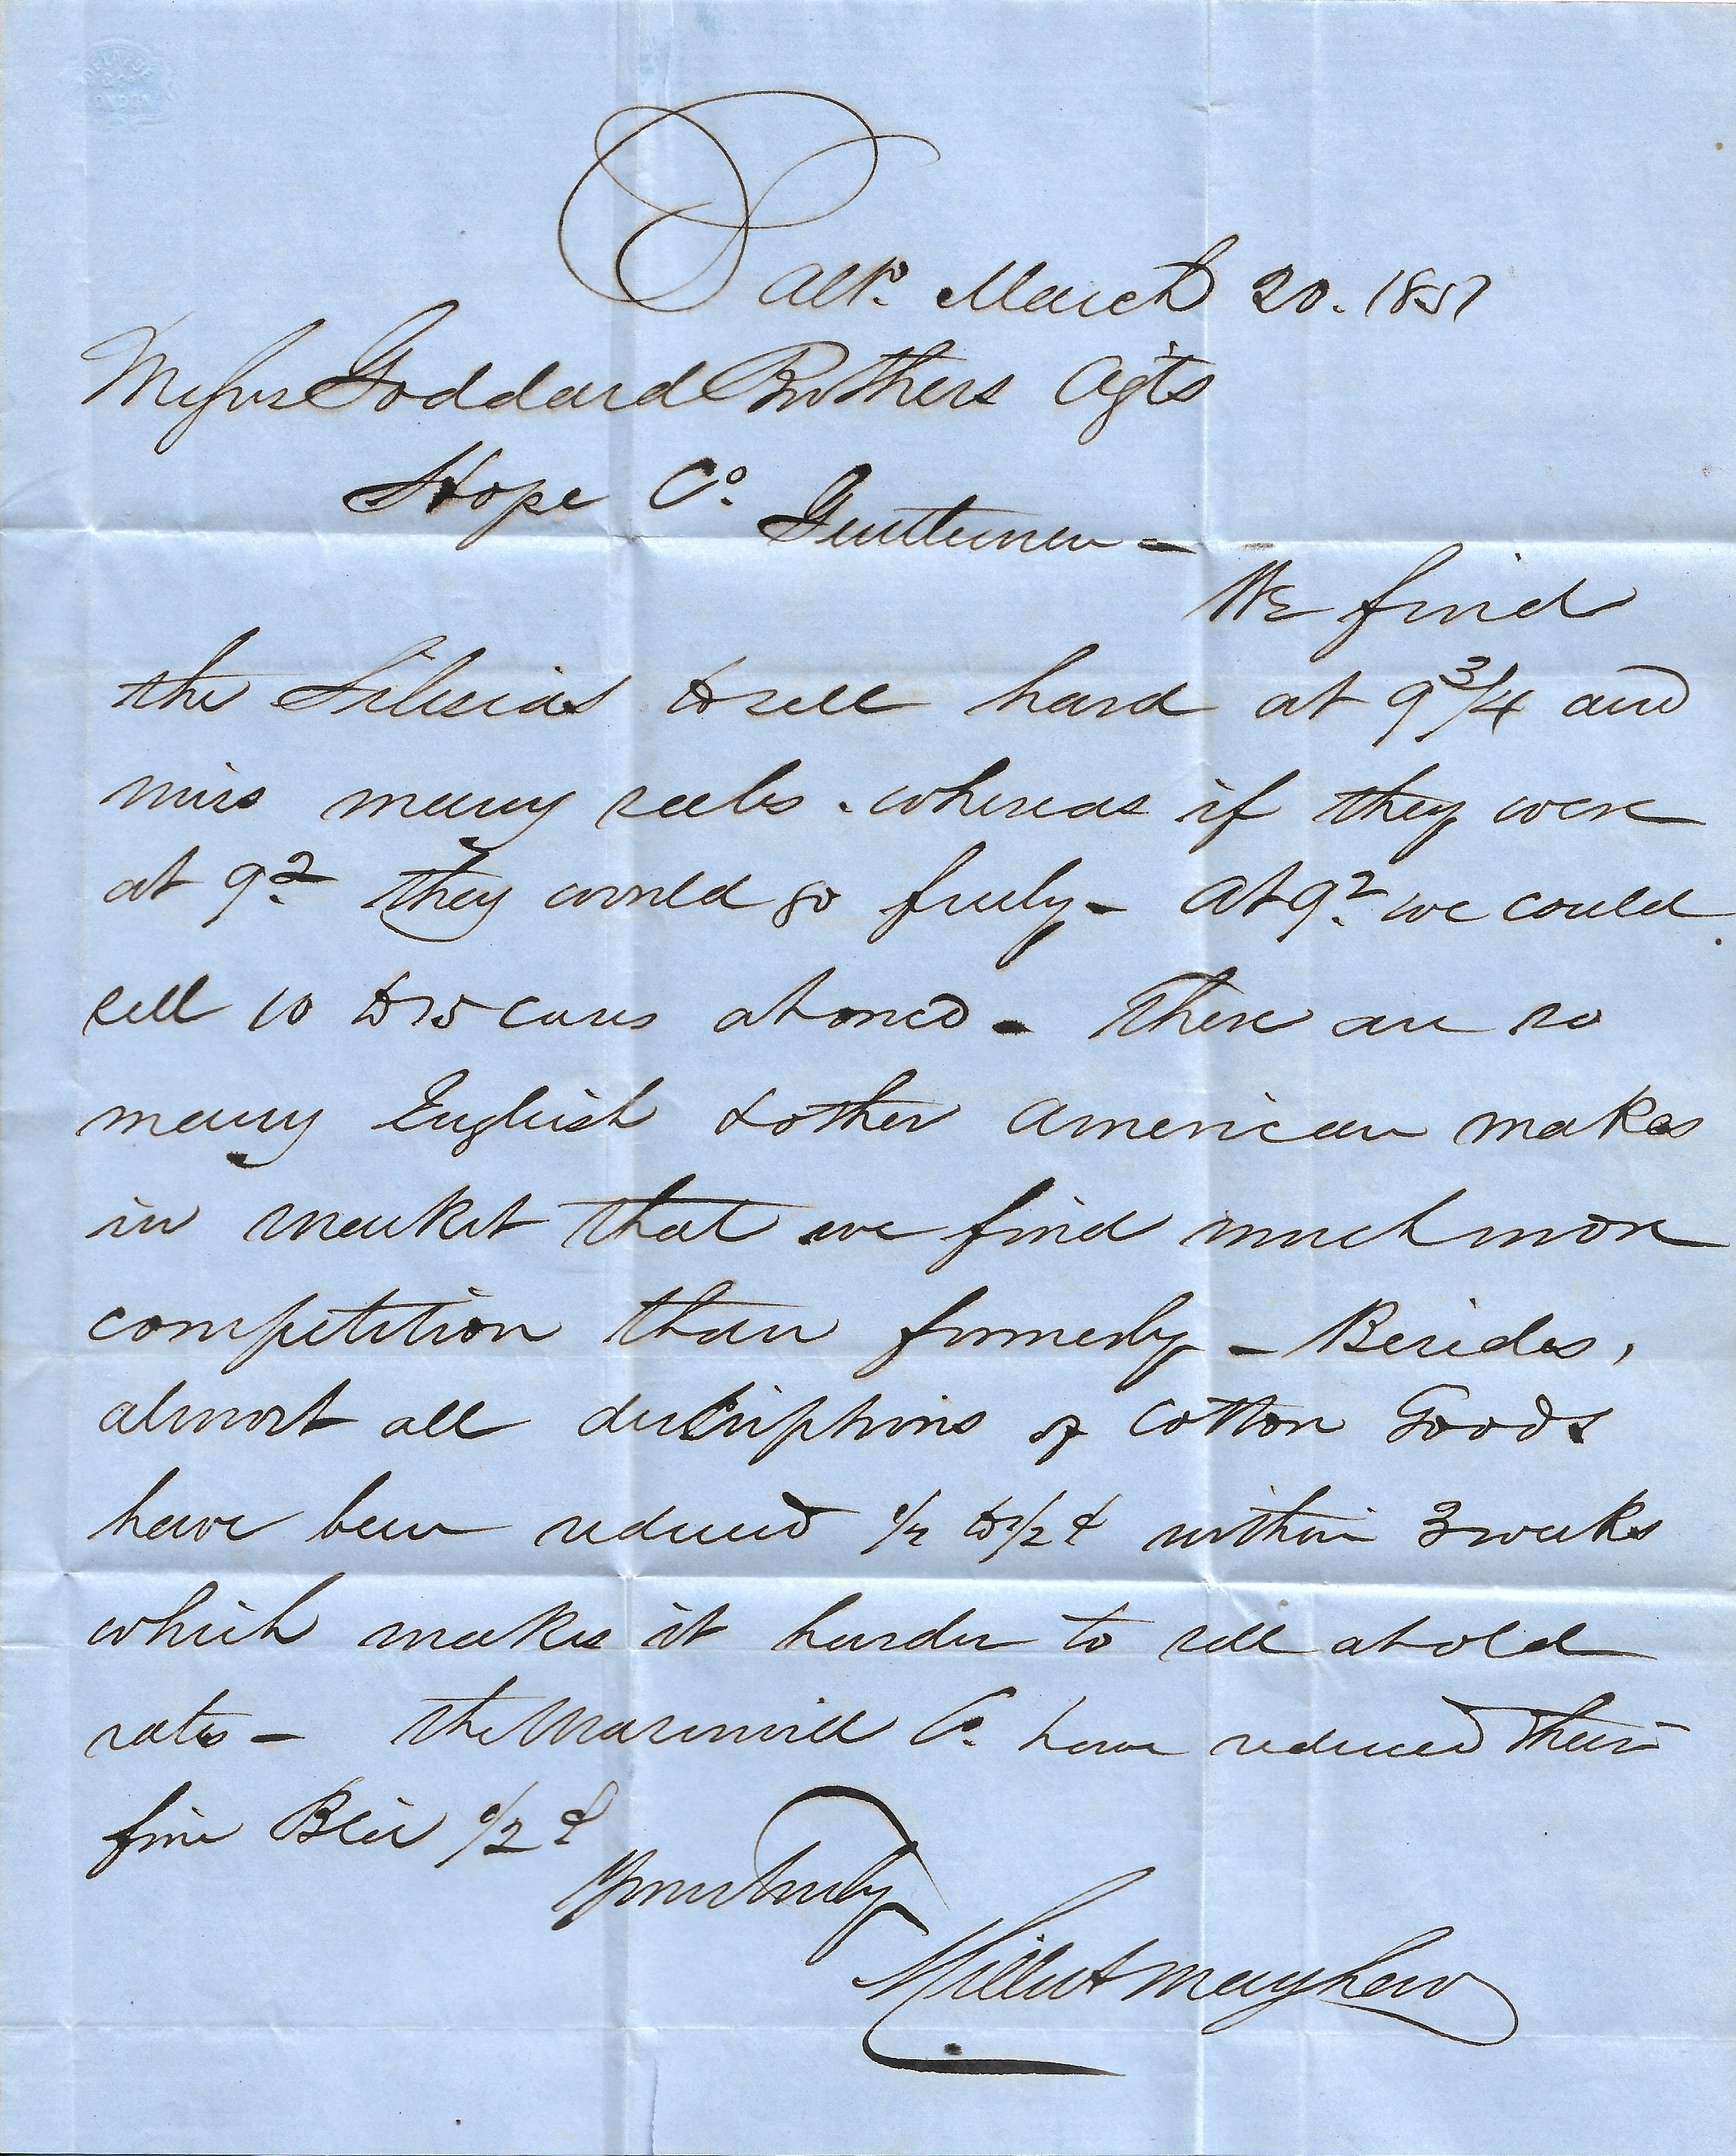 DE LA RUE
& CO
LONDON
Balto. March 20. 1857
Messrs Goddard Brothers Agts
Hope Co.
Gentlemen -
We find
the Silesias to sell hard at 9 3/4 and
miss many sales. whereas if they were
at 9 1/2 they would go freely - At 9 1/2 we could
sell 10 to 15 cases at once - There are so
many English & other American makes
in market that we find much more
competition than formerly - Besides,
almost all descriptions of Cotton Goods
have been reduced 1/4 to 1/2 ¢ within 3 weeks
which makes it harder to sell at old
rates - The Masonville Co. have reduced their
fine Blea 1/2 ¢
Yours Truly
Miller & Mayhew